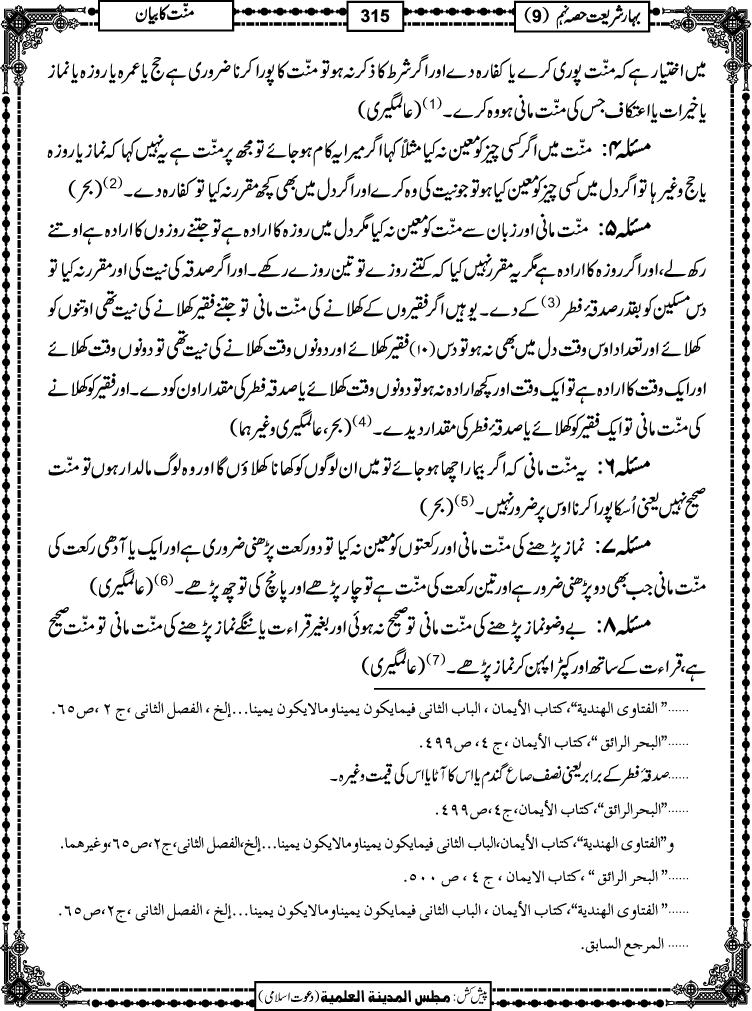 بہار شریعت حصہ نہم (9)
315
منّت کا بیان
میں اختیار ہے کہ منّت پوری کرے یا کفارہ دے اور اگر شرط کا ذکر نہ ہو تو منّت کا پورا کرنا ضروری ہے حج یا عمرہ یا روزہ یا نماز
یا خیرات یا اعتکاف جس کی منّت مانی ہو وہ کرے۔(1) (عالمگیری)
مسئلہ ۴: منّت میں اگر کسی چیز کو معین نہ کیا مثلاً کہا اگر میرا یہ کام ہو جائے تو مجھ پر منّت ہے یہ نہیں کہا کہ نماز یا روزہ
یا حج وغیرہا تو اگر دل میں کسی چیز کو معین کیا ہو تو جو نیت کی وہ کرے اور اگر دل میں بھی کچھ مقرر نہ کیا تو کفارہ دے۔(2) (بحر)
مسئلہ ۵: منّت مانی اور زبان سے منّت کو معین نہ کیا مگر دل میں روزہ کا ارادہ ہے تو جتنے روزوں کا ارادہ ہے اوتنے
رکھ لے، اور اگر روزہ کا ارادہ ہے مگر یہ مقرر نہیں کیا کہ کتنے روزے تو تین روزے رکھے۔ اور اگر صدقہ کی نیت کی اور مقرر نہ کیا تو
دس مسکین کو بقدر صدقۂ فطر (3) کے دے۔ یوہیں اگر فقیروں کے کھلانے کی منّت مانی تو جتنے فقیر کھلانے کی نیت تھی اوتنوں کو
کھلائے اور تعداد اوس وقت دل میں بھی نہ ہو تو دس (۱۰) فقیر کھلائے اور دونوں وقت کھلانے کی نیت تھی تو دونوں وقت کھلائے
اور ایک وقت کا ارادہ ہے تو ایک وقت اور کچھ ارادہ نہ ہو تو دونوں وقت کھلائے یا صدقہ فطر کی مقدار اون کو دے۔ اور فقیر کو کھلانے
کی منّت مانی تو ایک فقیر کو کھلائے یا صدقۂ فطر کی مقدار دیدے۔(4) (بحر، عالمگیری وغیرہما)
مسئلہ ۶: یہ منّت مانی کہ اگر بیمار اچھا ہو جائے تو میں ان لوگوں کو کھانا کھلاؤں گا اور وہ لوگ مالدار ہوں تو منّت
صحیح نہیں یعنی اُسکا پورا کرنا اوس پر ضرور نہیں۔(5) (بحر)
مسئلہ ۷: نماز پڑھنے کی منّت مانی اور رکعتوں کو معین نہ کیا تو دو رکعت پڑھنی ضروری ہے اور ایک یا آدھی رکعت کی
منّت مانی جب بھی دو پڑھنی ضرور ہے اور تین رکعت کی منّت ہے تو چار پڑھے اور پانچ کی تو چھ پڑھے۔(6) (عالمگیری)
مسئلہ ۸: بے وضو نماز پڑھنے کی منّت مانی تو صحیح نہ ہوئی اور بغیر قراءت یا ننگے نماز پڑھنے کی منّت مانی تو منّت صحیح
ہے، قراءت کے ساتھ اور کپڑا پہن کر نماز پڑھے۔(7) (عالمگیری)
......"الفتاوی الهندية"، کتاب الأیمان ، الباب الثانی فیمایکون یمیناومالایکون یمینا...إلخ ، الفصل الثانی ،ج ٢ ،ص٦٥.
......"البحر الرائق "، کتاب الأیمان ،ج ٤، ص٤٩٩.
......صدقۂ فطر کے برابر یعنی نصف صاع گندم یا اس کا آٹا یا اس کی قیمت وغیرہ۔
......"البحرالرائق"، کتاب الأیمان،ج٤،ص٤٩٩.
و"الفتاوی الهندية"،کتاب الأیمان،الباب الثانی فیمایکون یمیناومالایکون یمینا...إلخ،الفصل الثانی،ج٢،ص٦٥،وغیرهما.
......" البحر الرائق " ، کتاب الایمان ، ج ٤ ، ص ٥٠٠.
......" الفتاوی الهندية"، کتاب الأیمان ، الباب الثانی فیمایکون یمیناومالایکون یمینا...إلخ ، الفصل الثانی ،ج٢،ص٦٥.
...... المرجع السابق.
پیش کش: مجلس المدینة العلمیة (دعوت اسلامی)